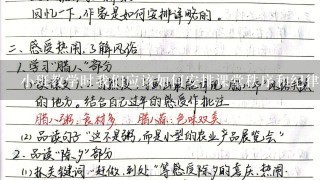 回忆一下,作家是如何安排详略的。
二、感受热闹,了解风俗
1.学习“腊八”部分
小班教学时我们应该如何安排课堂秩序和纪律
的地方。结合自己过年的感受作批注
腊八粥:食材多 腊八蒜:色味双美
(2)品读句子“这不是粥,而是小型的农业产品展览会”
2.品读“除夕”部分
(1)抓关键词“赶做、到处”等感受除夕的喜庆、热闹